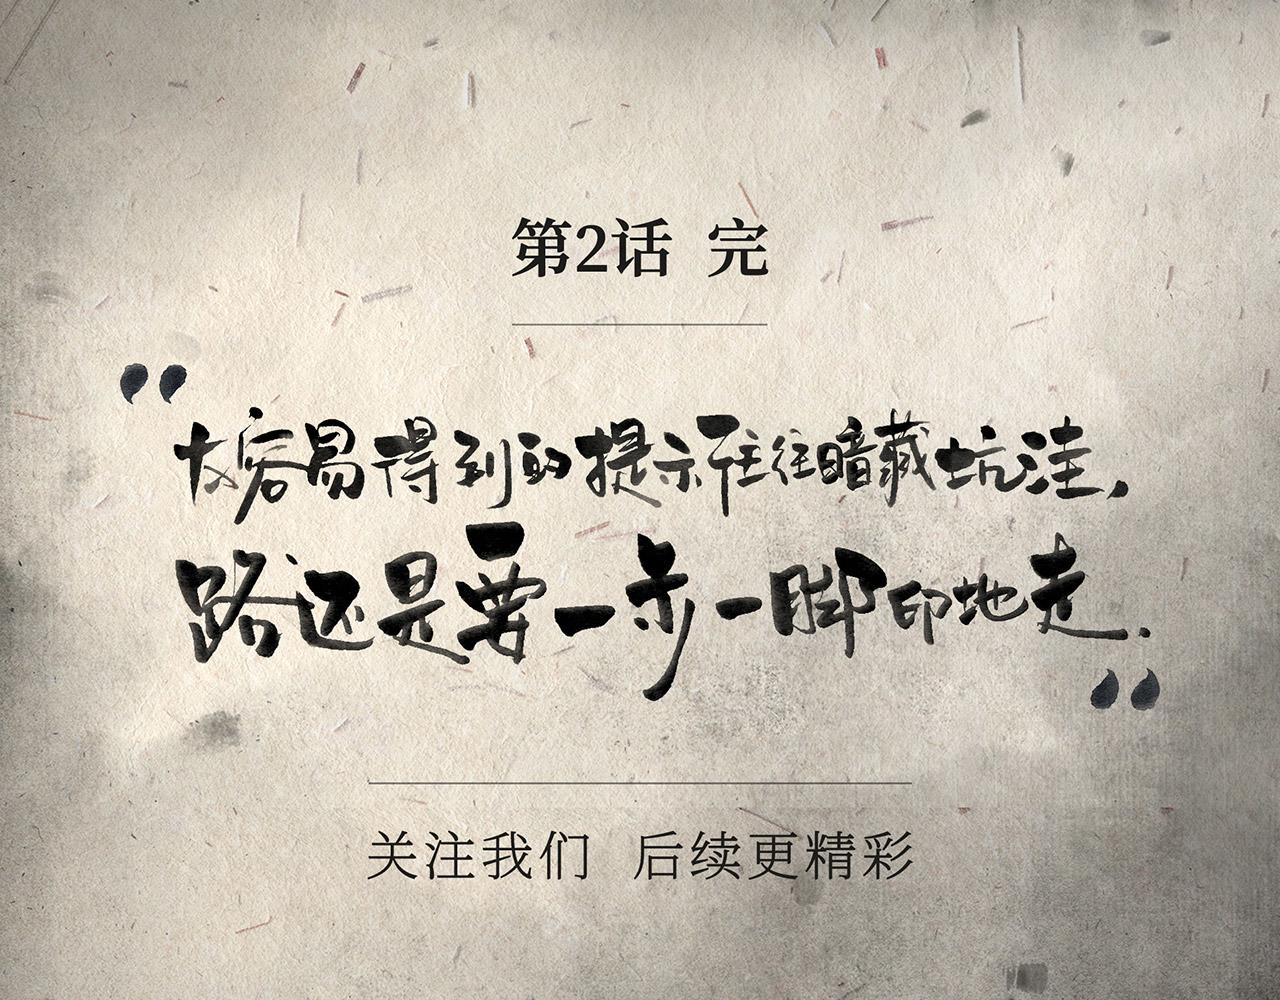 第2话 完
“太容易得到的提示往往暗藏坑洼,
路还是要一步一脚印地走.”
关注我们 后续更精彩